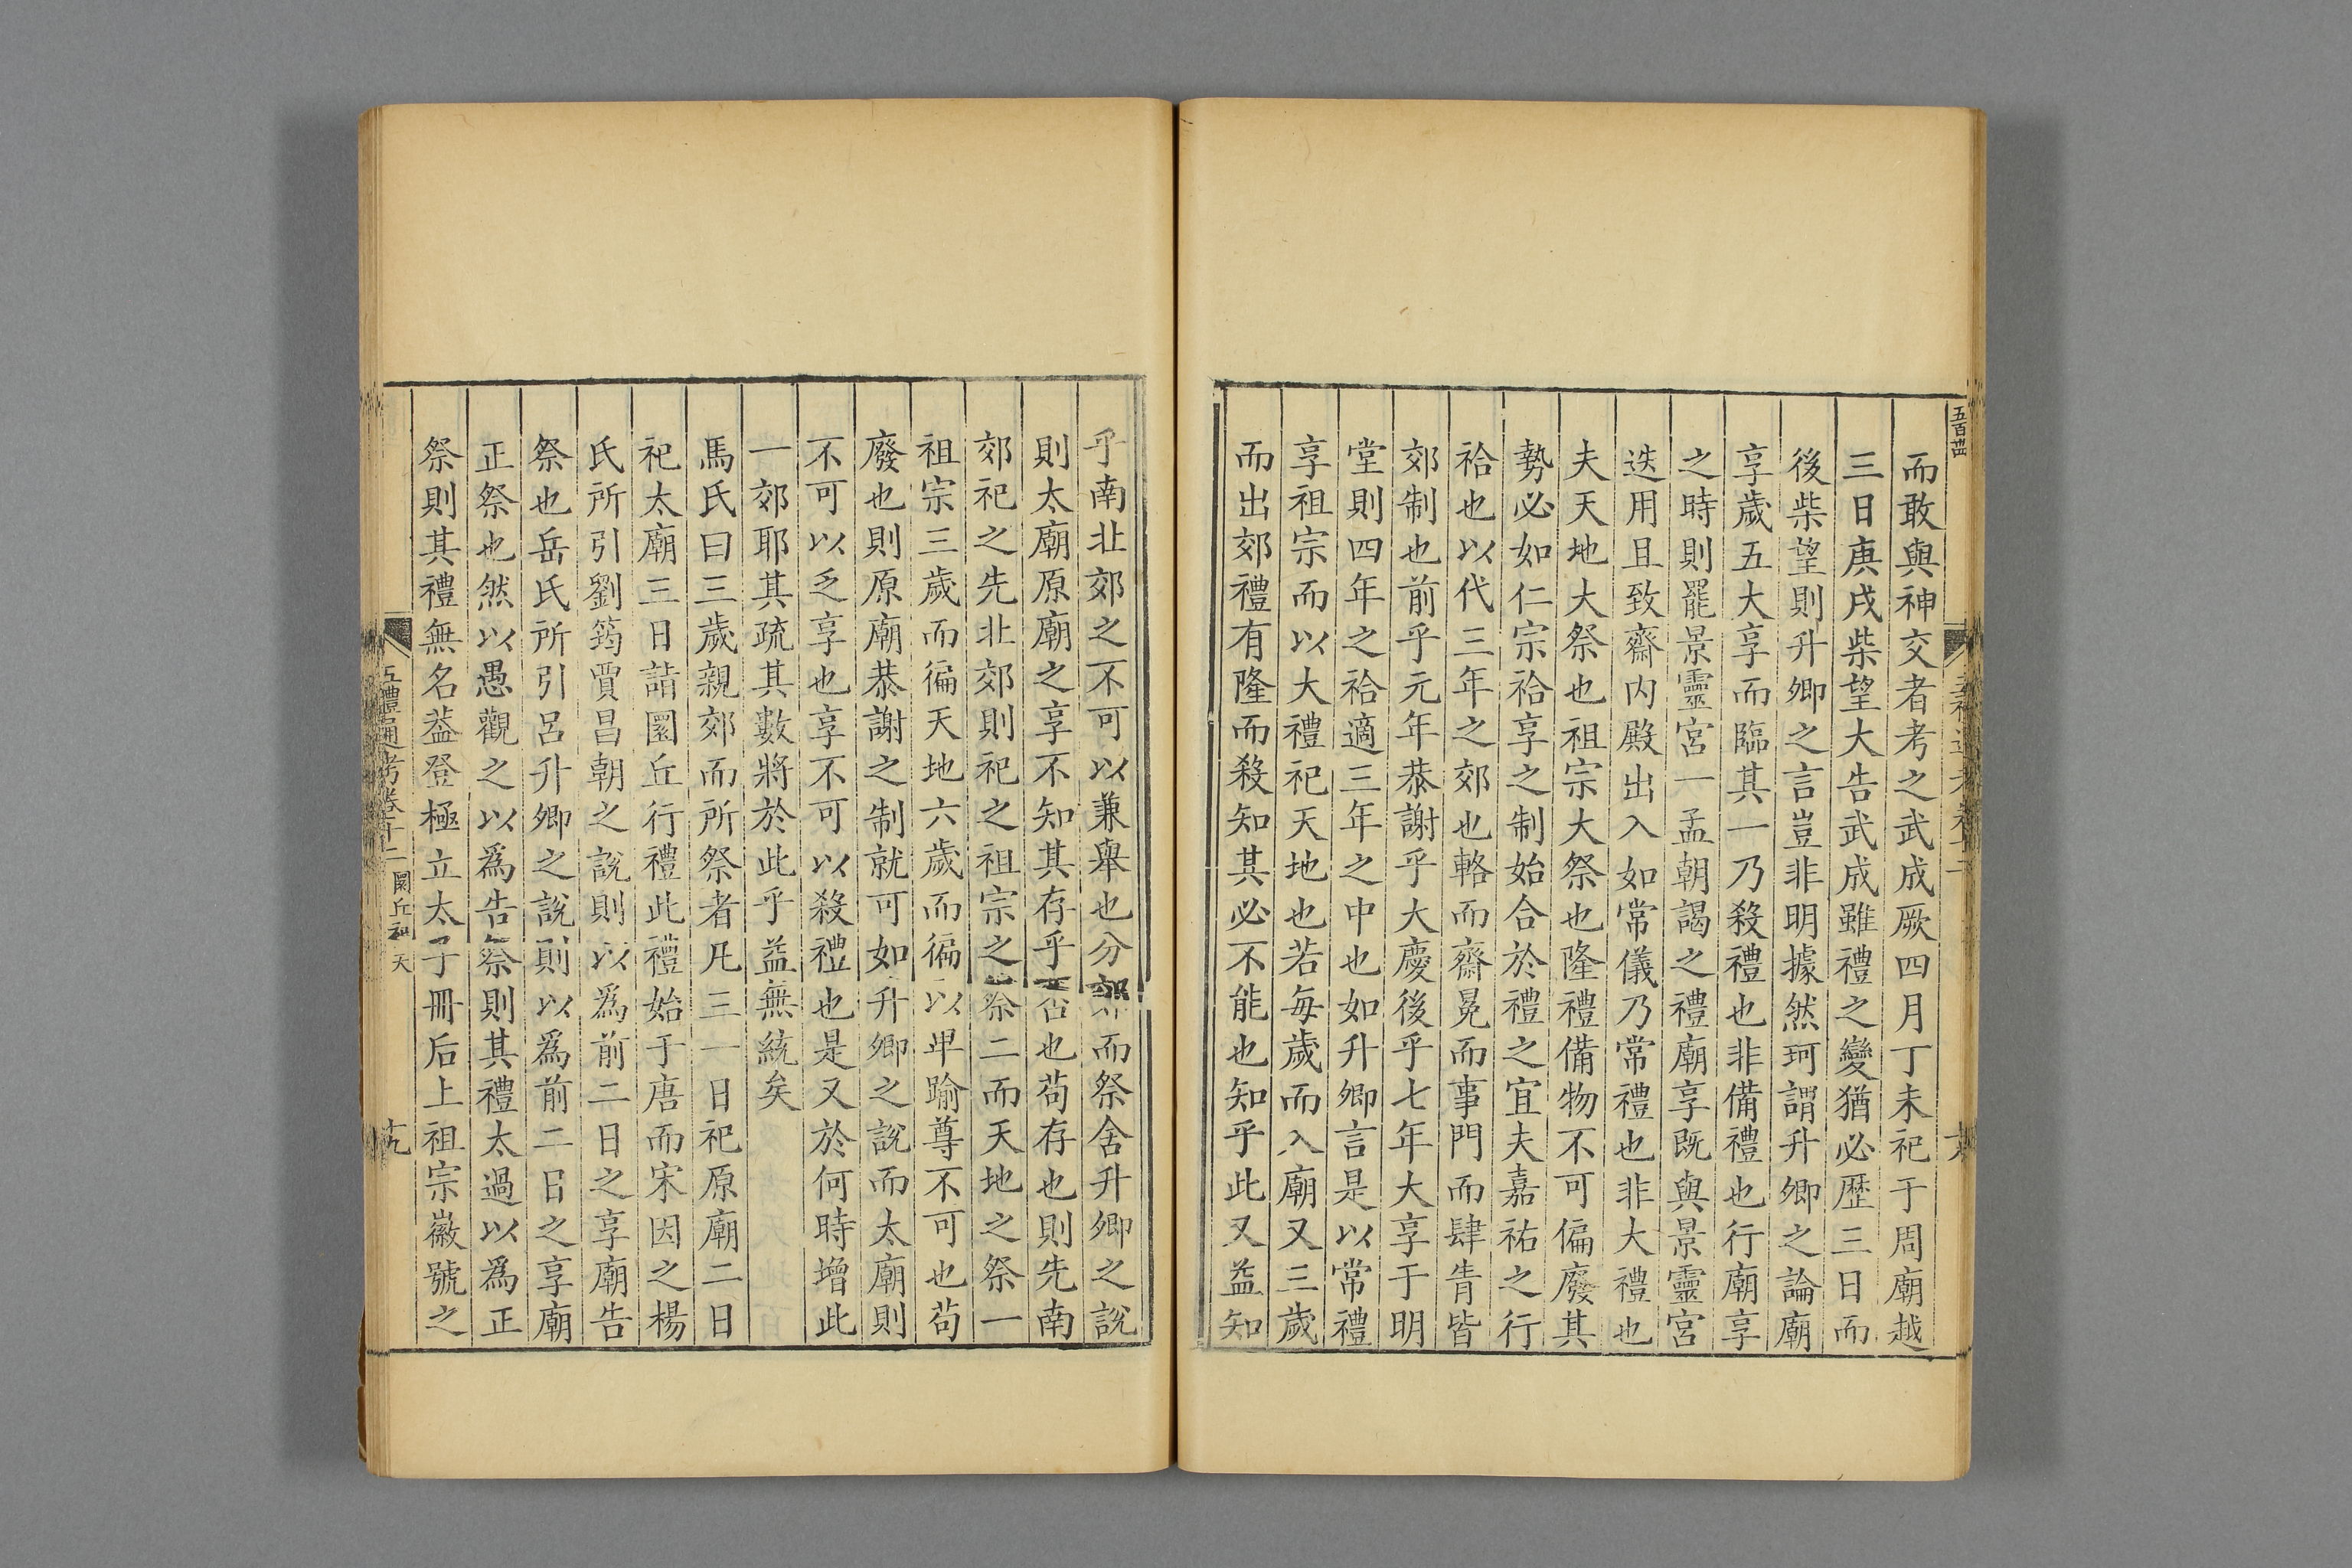 五百卌
而敢與神交者考之武成厥四月丁未祀于周廟越
三日庚戌柴望大告武成雖禮之變猶必歷三日而
後柴望則升卿之言豈非明據然珂謂升卿之論廟
享歲五大享而臨其一乃殺禮也非備禮也行廟享
之時則罷景靈宮一孟朝謁之禮廟享既與景靈宮
迭用且致齋内殿出入如常儀乃常禮也非大禮也
夫天地大祭也祖宗大祭也隆禮備物不可偏廢其
勢必如仁宗祫享之制始合於禮之宜夫嘉祐之行
祫也以代三年之郊也輅而齋冕而事門而肆眚皆
郊制也前乎元年恭謝乎大慶後乎七年大享于明
堂則四年之祫適三年之中也如升卿言是以常禮
享祖宗而以大禮祀天地也若每歲而入廟又三歲
而出郊禮有隆而殺知其必不能也知乎此又益知
乎南北郊之不可以兼舉也分郊而祭舍升卿之說
則太廟原廟之享不知其存乎否也苟存也則先南
郊祀之先北郊則祀之祖宗之祭二而天地之祭一
祖宗三歲而徧天地六歲而徧以卑踰尊不可也苟
廢也則原廟恭謝之制就可如升卿之說而太廟則
不可以乏享也享不可以殺禮也是又於何時增此
一郊耶其疏其數將於此乎益無統矣
馬氏曰三歲親郊而所祭者凡三一日祀原廟二日
祀太廟三日詣圜丘行禮此禮始于唐而宋因之楊
氏所引劉筠賈昌朝之說則以爲前二日之享廟告
祭也岳氏所引呂升卿之說則以爲前二日之享廟
正祭也然以愚觀之以爲告祭則其禮太過以爲正
祭則其禮無名葢登極立太子冊后上祖宗徽號之
五禮通考卷十二 圜丘祀天 十九